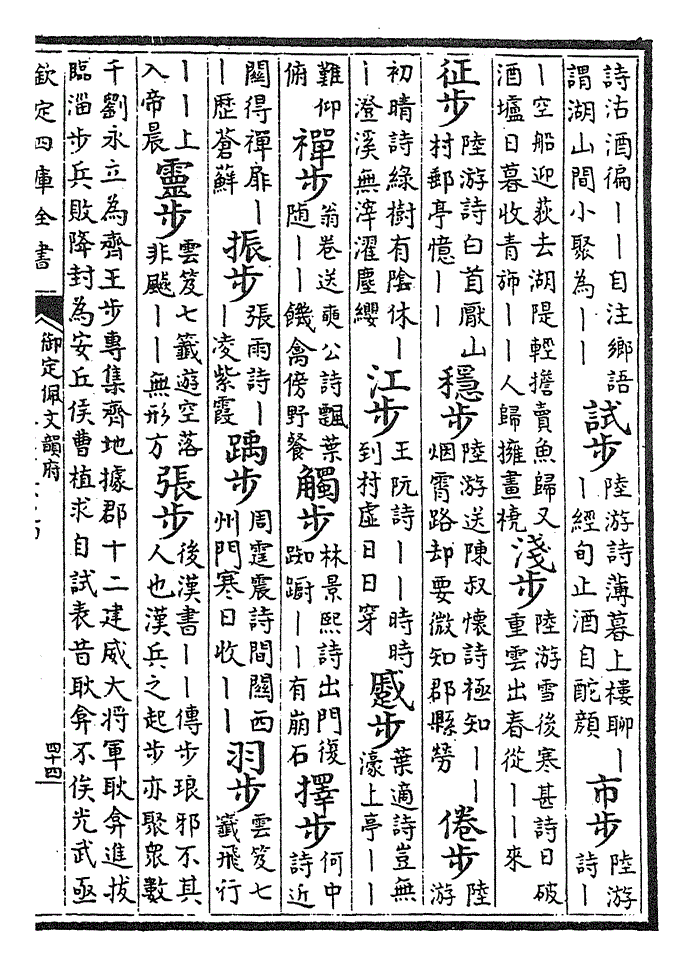 詩沽酒徧丨丨自注鄉語
謂湖山間小聚為丨丨
試步
陸游詩薄暮上樓聊丨
丨經旬止酒自酡顔
市步
陸游
詩丨
丨空船迎荻去湖隄輕擔賣魚歸又
酒壚日暮收青斾丨丨人歸擁畫橈
淺步
陸游雪後寒甚詩日破
重雲出春從丨丨來
征步
陸游詩白首厭山
村郵亭憶丨丨
穩步
陸游送陳叔懷詩極知丨丨
烟霄路却要微知郡縣勞
倦步
陸
游
初晴詩綠樹有陰休丨
丨澄溪無滓濯塵纓
江步
王阮詩丨丨時時
到村虛日日穿
蹙步
葉適詩豈無
濠上亭丨丨
難仰
俯
禪步
翁卷送奭公詩飄葉
随丨丨饑禽傍野餐
觸步
林景熙詩出門復
踟蹰丨丨有崩石
擇步
何中
詩近
關得禪扉丨
丨歷蒼蘚
振步
張雨詩丨
丨凌紫霞
踽步
周霆震詩間關西
州門寒日收丨丨
羽步
雲笈七
籤飛行
丨丨上
入帝晨
靈步
雲笈七籤遊空落
非飈丨丨無形方
張步
後漢書丨丨傳步琅邪不其
人也漢兵之起步亦聚眾數
千劉永立為齊王步專集齊地據郡十二建威大將軍耿弇進拔
臨淄步兵敗降封為安丘侯曹植求自試表昔耿弇不俟光武亟
欽定四庫全書
御定佩文韻府
四十四